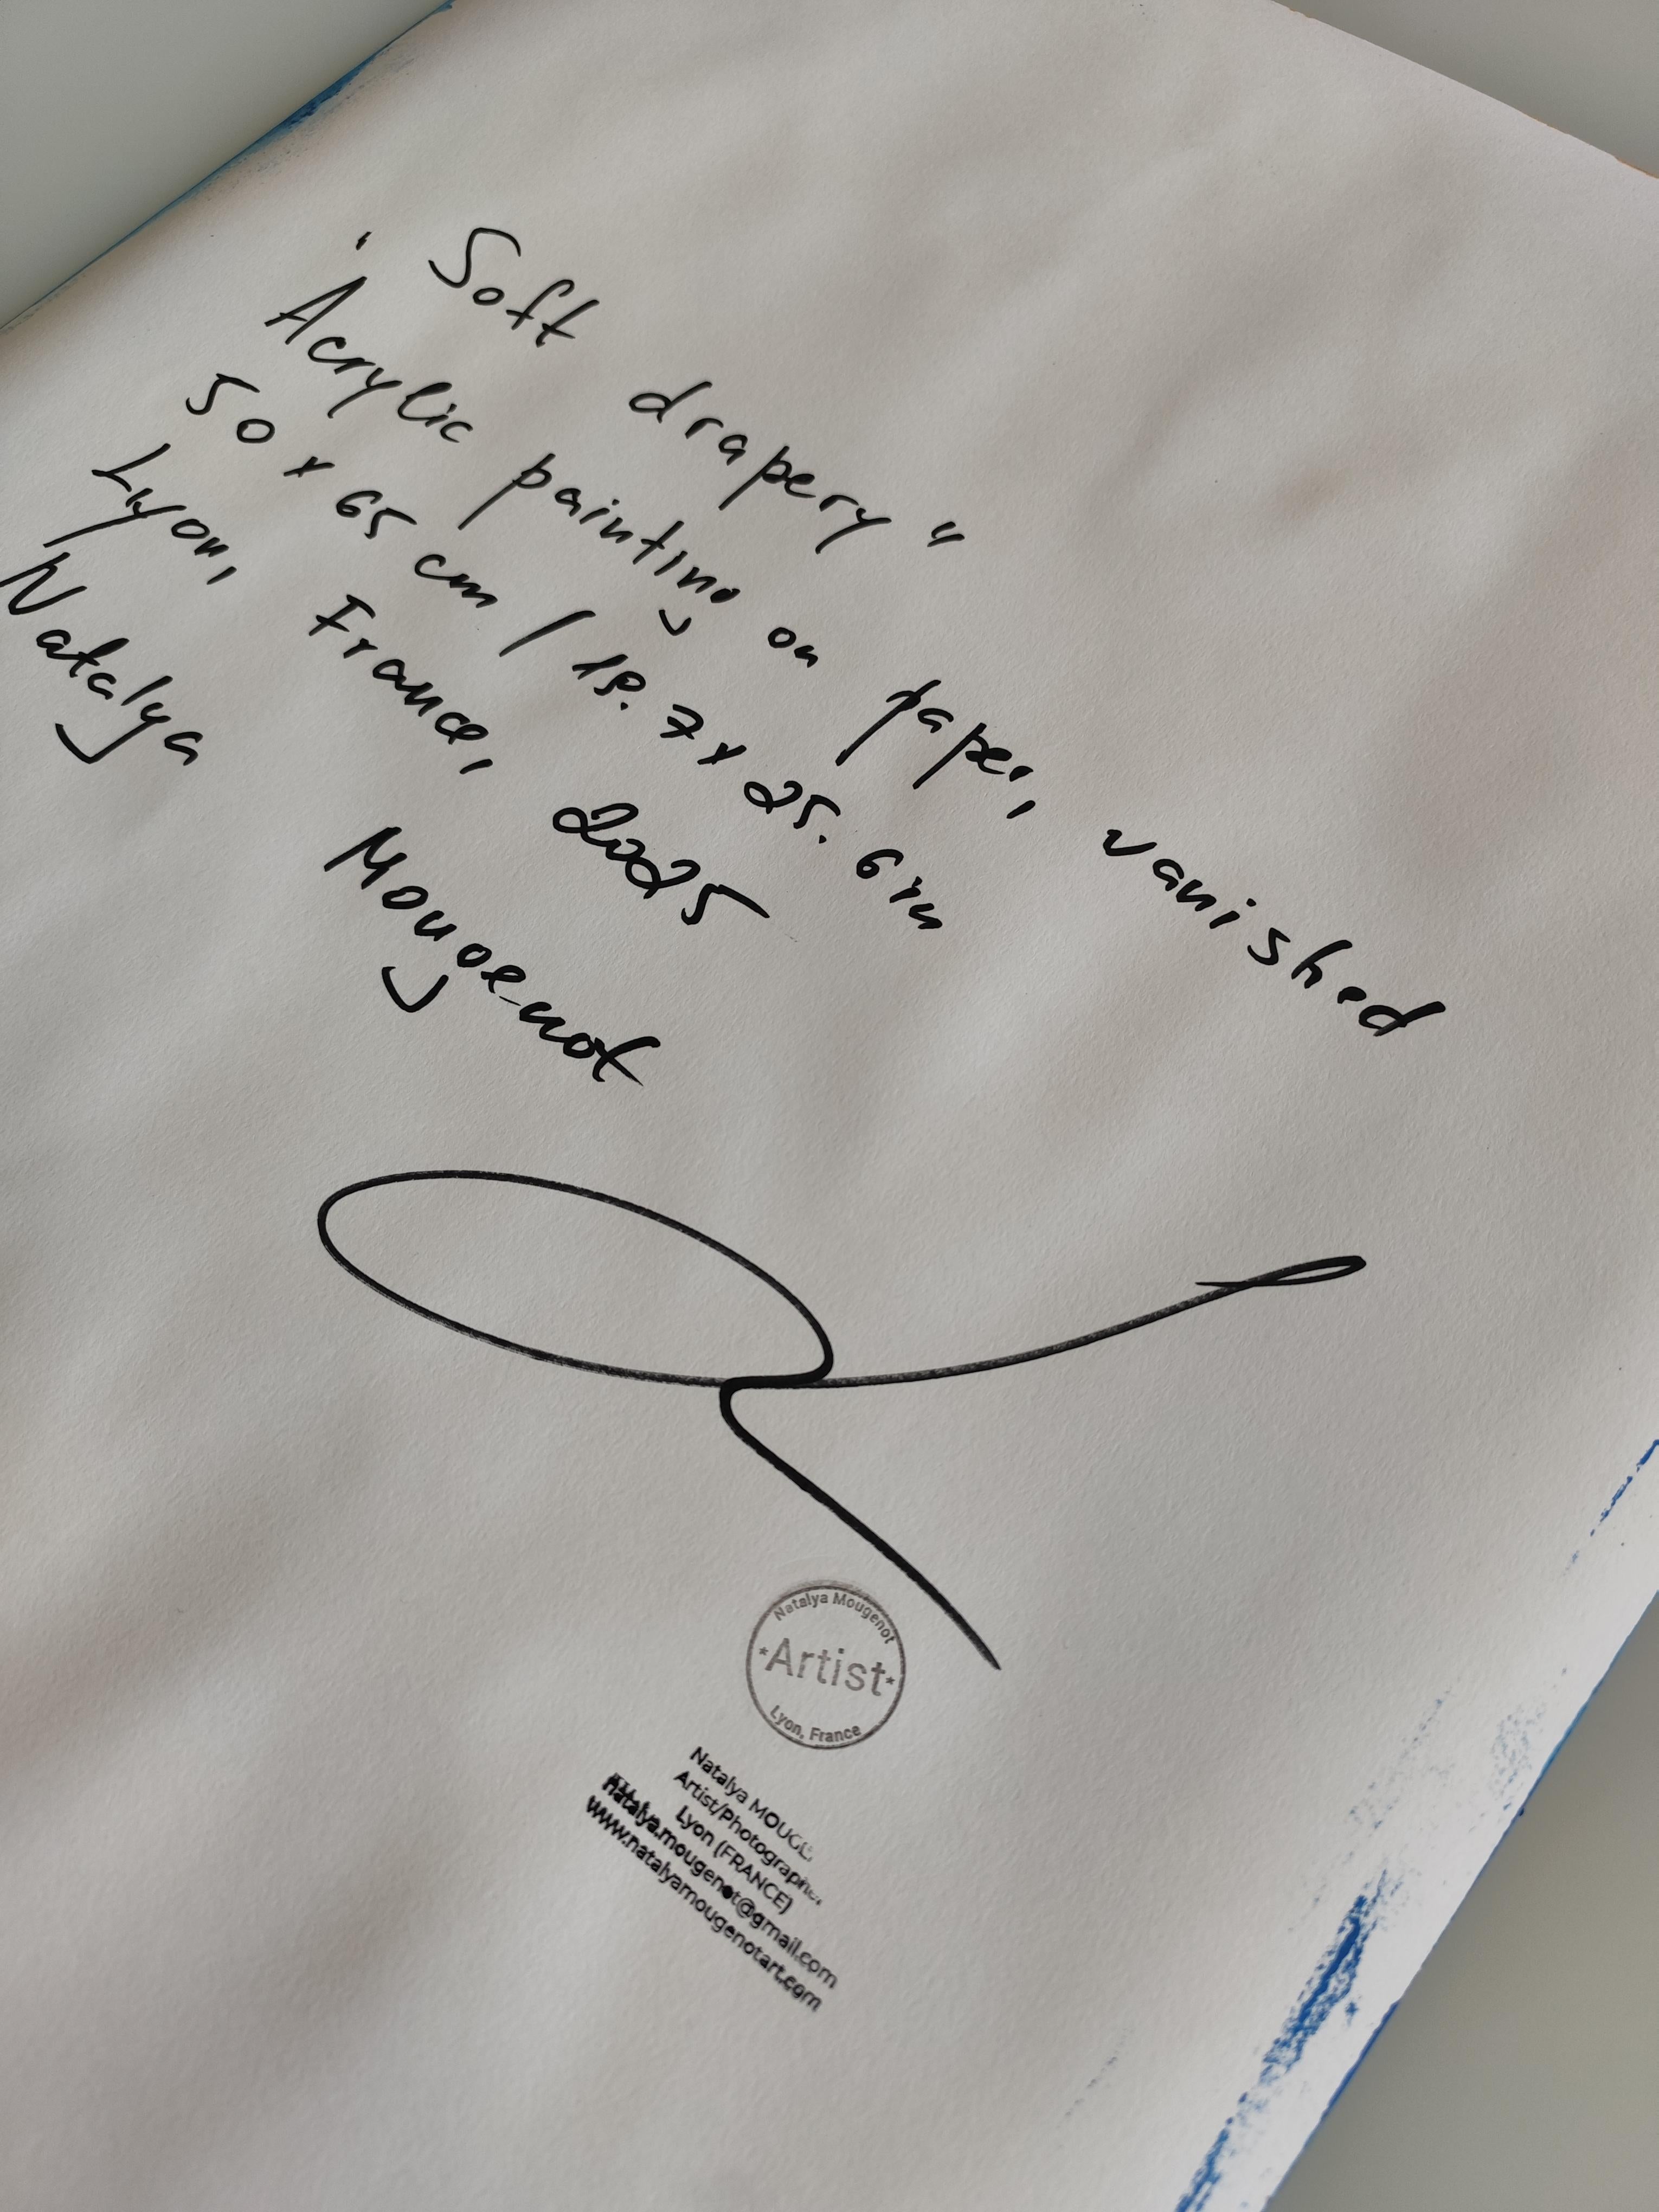 ' Soft drapery "
Acrylic painting on paper, vanished
50 x 65 cm / 19.7 x 25.6 in
Lyon, France, 2025
Natalya Mougenot
Natalya Mougenot
*Artist*
Lyon, France
Natalya MOUGE
Artist/Photographer
Lyon (FRANCE)
natalya.mougenot@gmail.com
www.natalyamougenotart.com